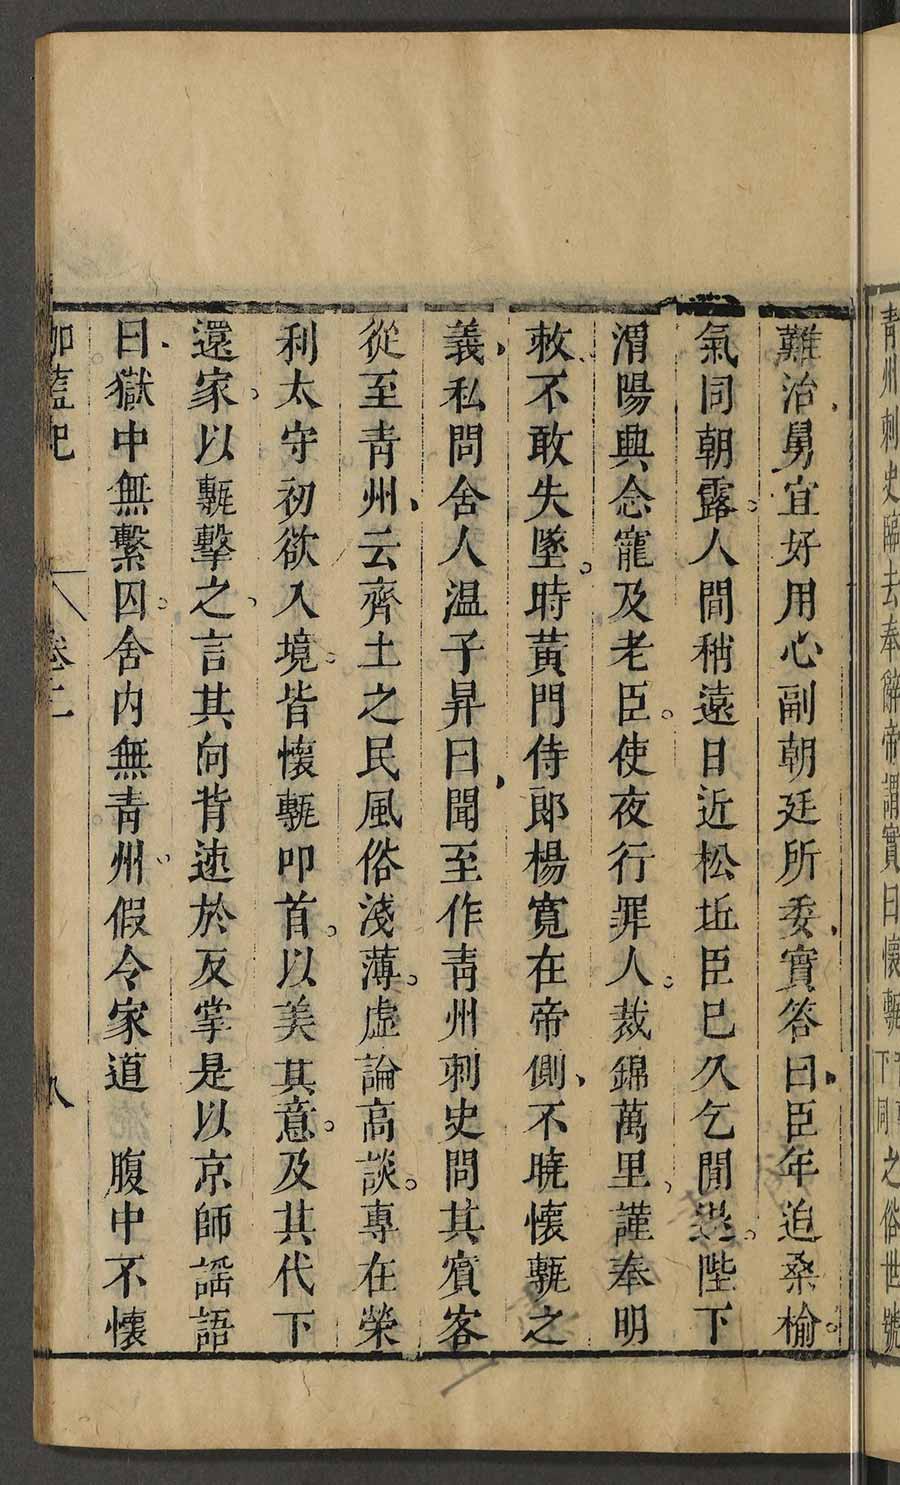 青州刺史臨去奉辭帝謂實曰懷甎下同之俗世號
難治舅宜好用心副朝廷所委實答曰臣年迫桑榆
氣同朝露人間稍遠日近松丘臣已久乞閒退陛下
渭陽興念寵及老臣使夜行罪人裁錦萬里謹奉明
敕不敢失墜時黃門侍郎楊寬在帝側不曉懷甎之
義私問舍人温子昇曰聞至作青州刺史問其賓客
從至青州云齊土之民風俗淺薄虛論高談專在榮
利太守初欲入境皆懷甎叩首以美其意及其代下
還家以甎擊之言其向背速於反掌是以京師謡語
曰獄中無繫囚舍內無青州假令家道 腹中不懷
伽藍記 卷二 八